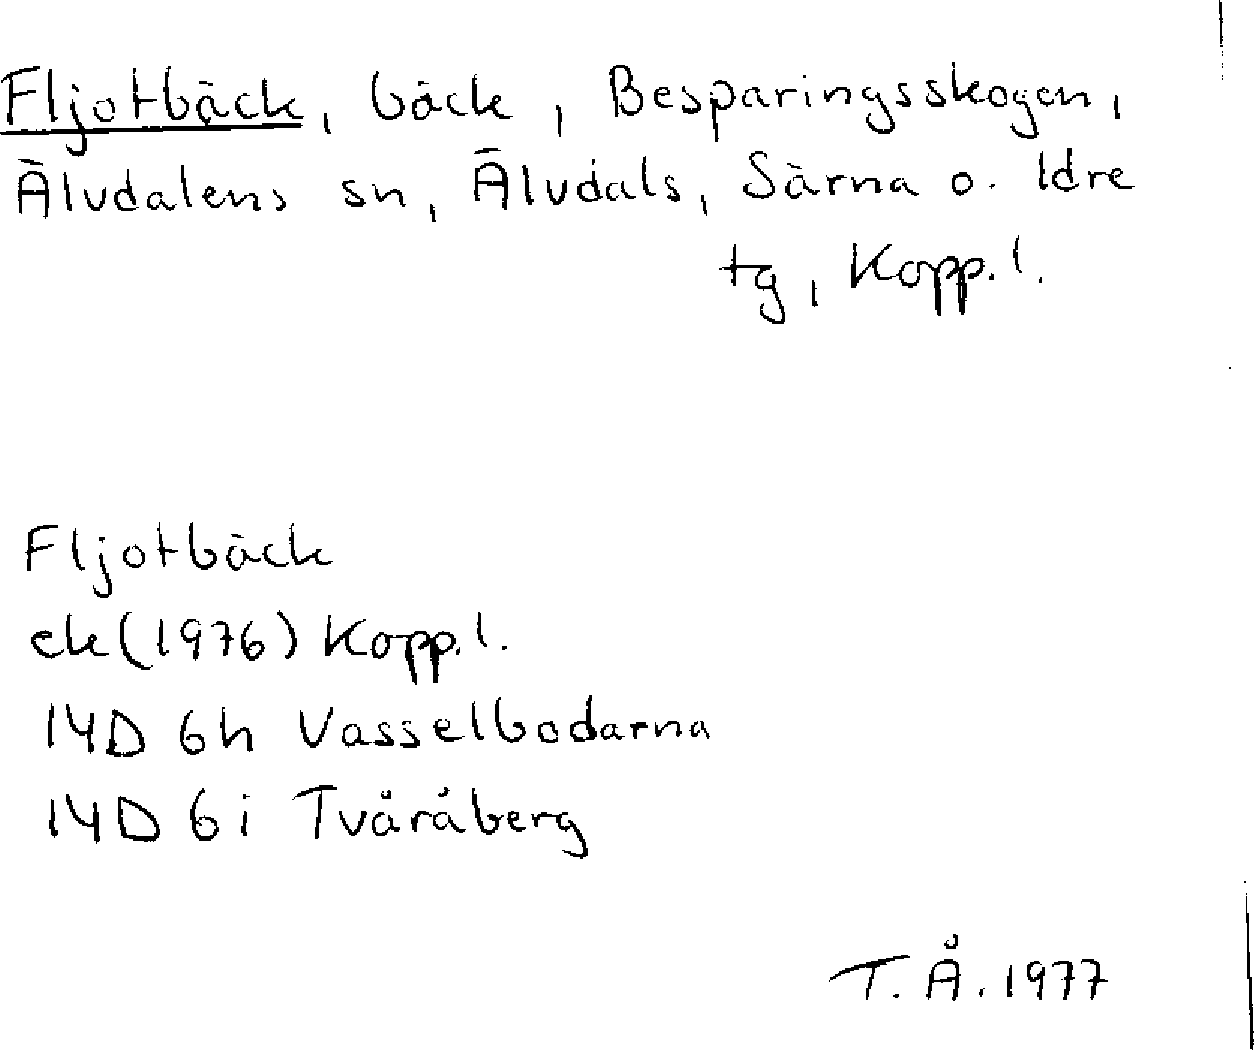 Fljotbäck, bäck, Besparingsskogen,
Älvdalens sn, Älvdals, Särna o. Idre
tg, Kopp.l.
Fljotbäck
ek(1976) Kopp.l.
14D 6h Vasselbodarna
14D 6i Tvåråberg
T. Å. 1977